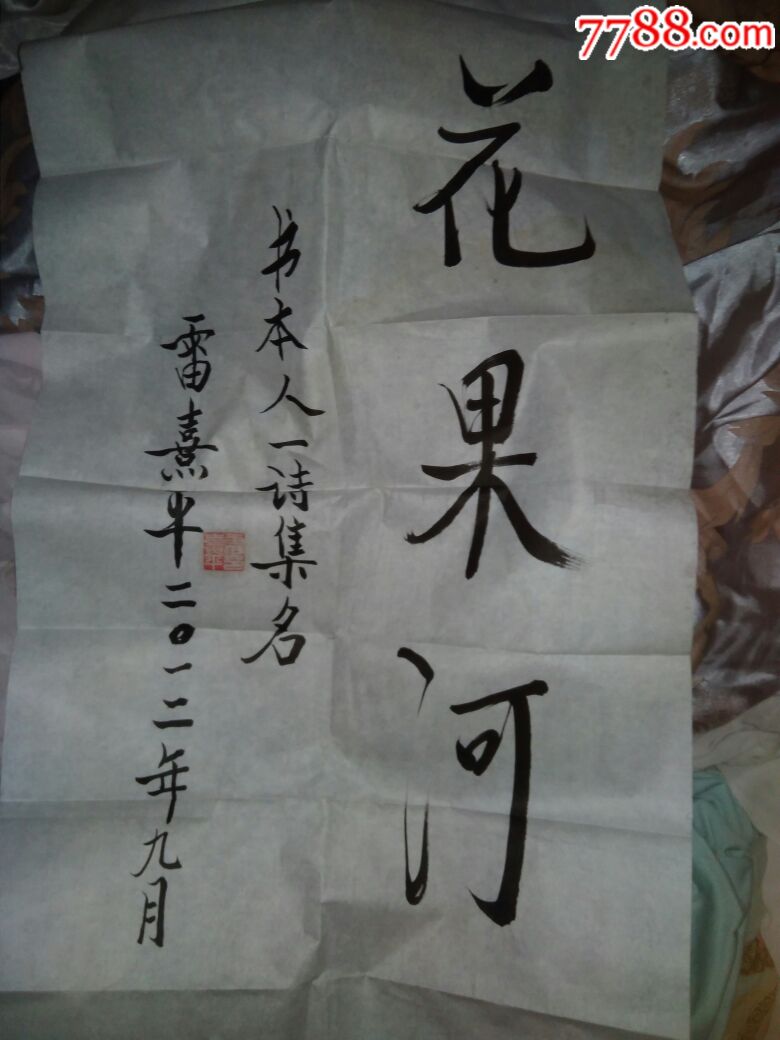 7788.com
花果河
书本人一诗集名
雷熹平二〇一二年九月